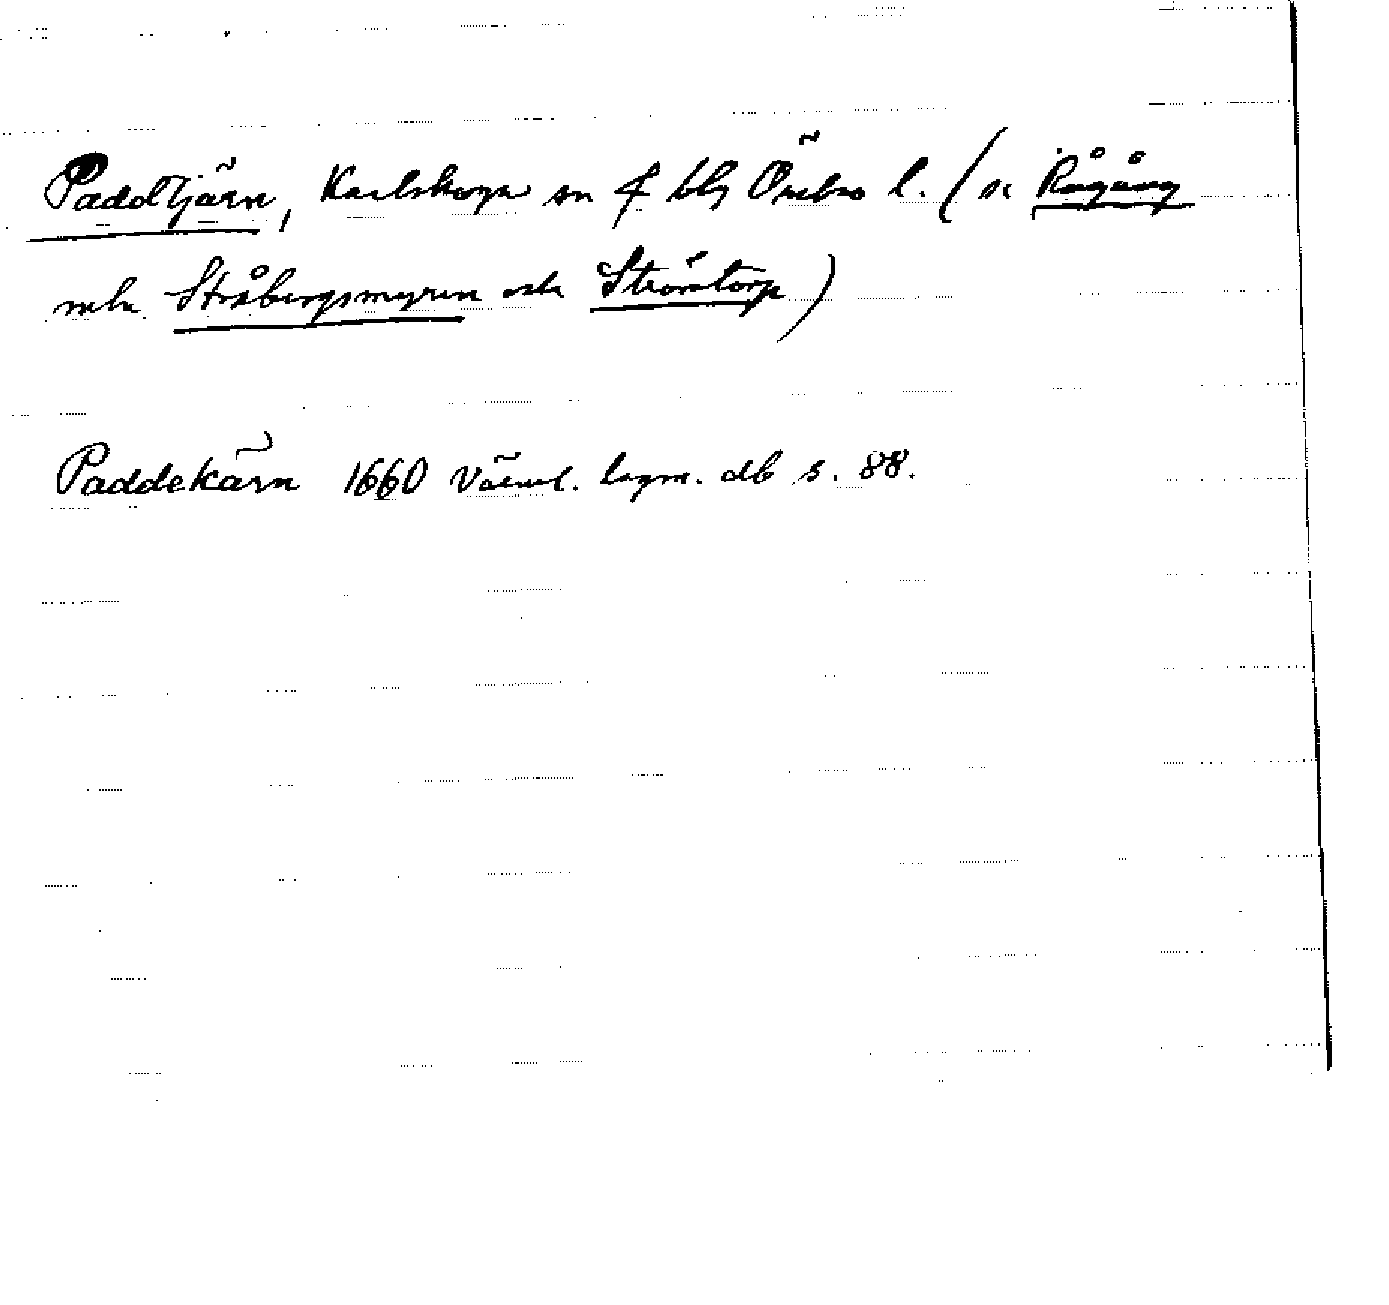 Paddtjärn, Karlskoga sn f blg Örebro l. (se Rågång
mln Stråbergsmyren och Ströstorp)
Paddekärn 1660 Värml. lagm. db s. 88.